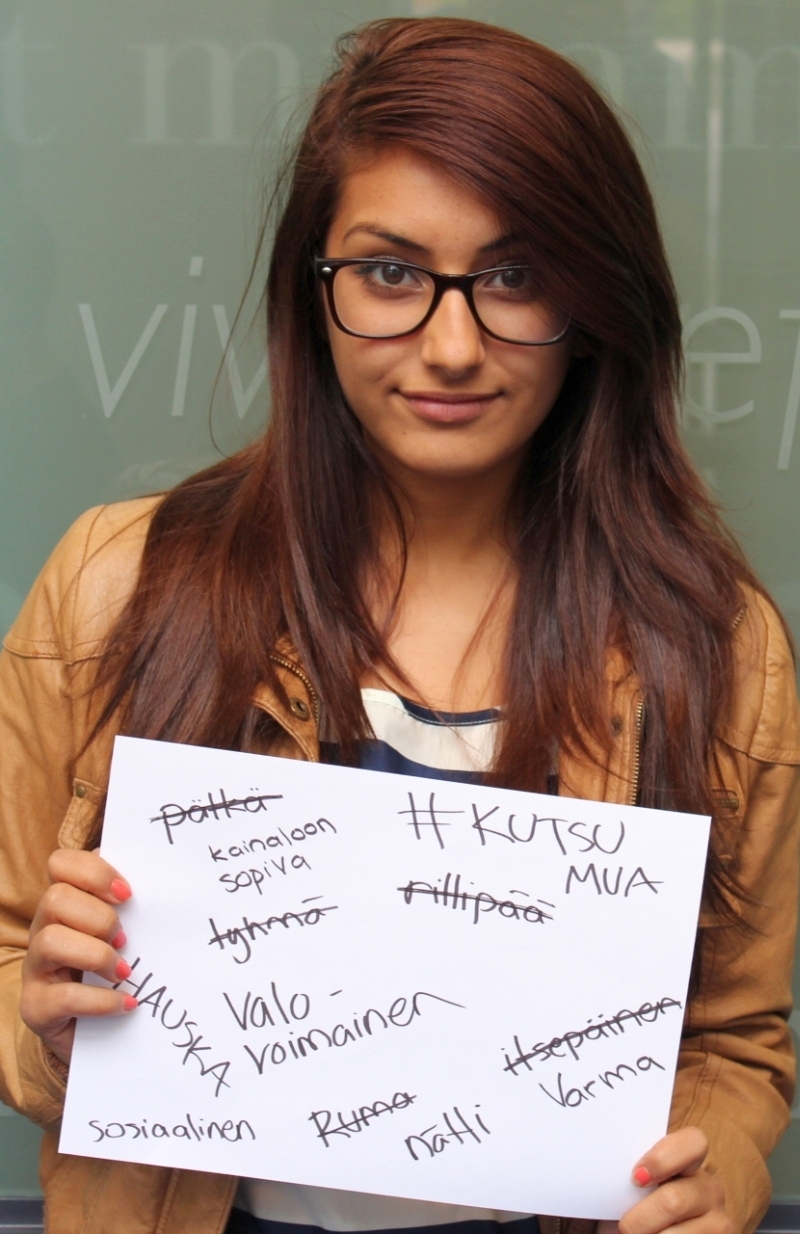 viv
pätkä
kainaloon
sopiva
#KUTSU
MUA
rillipää
tyhmä
HAUSKA
Valo-
voimainen
itsepäinen
Varma
sosiaalinen
Ruma
nätti